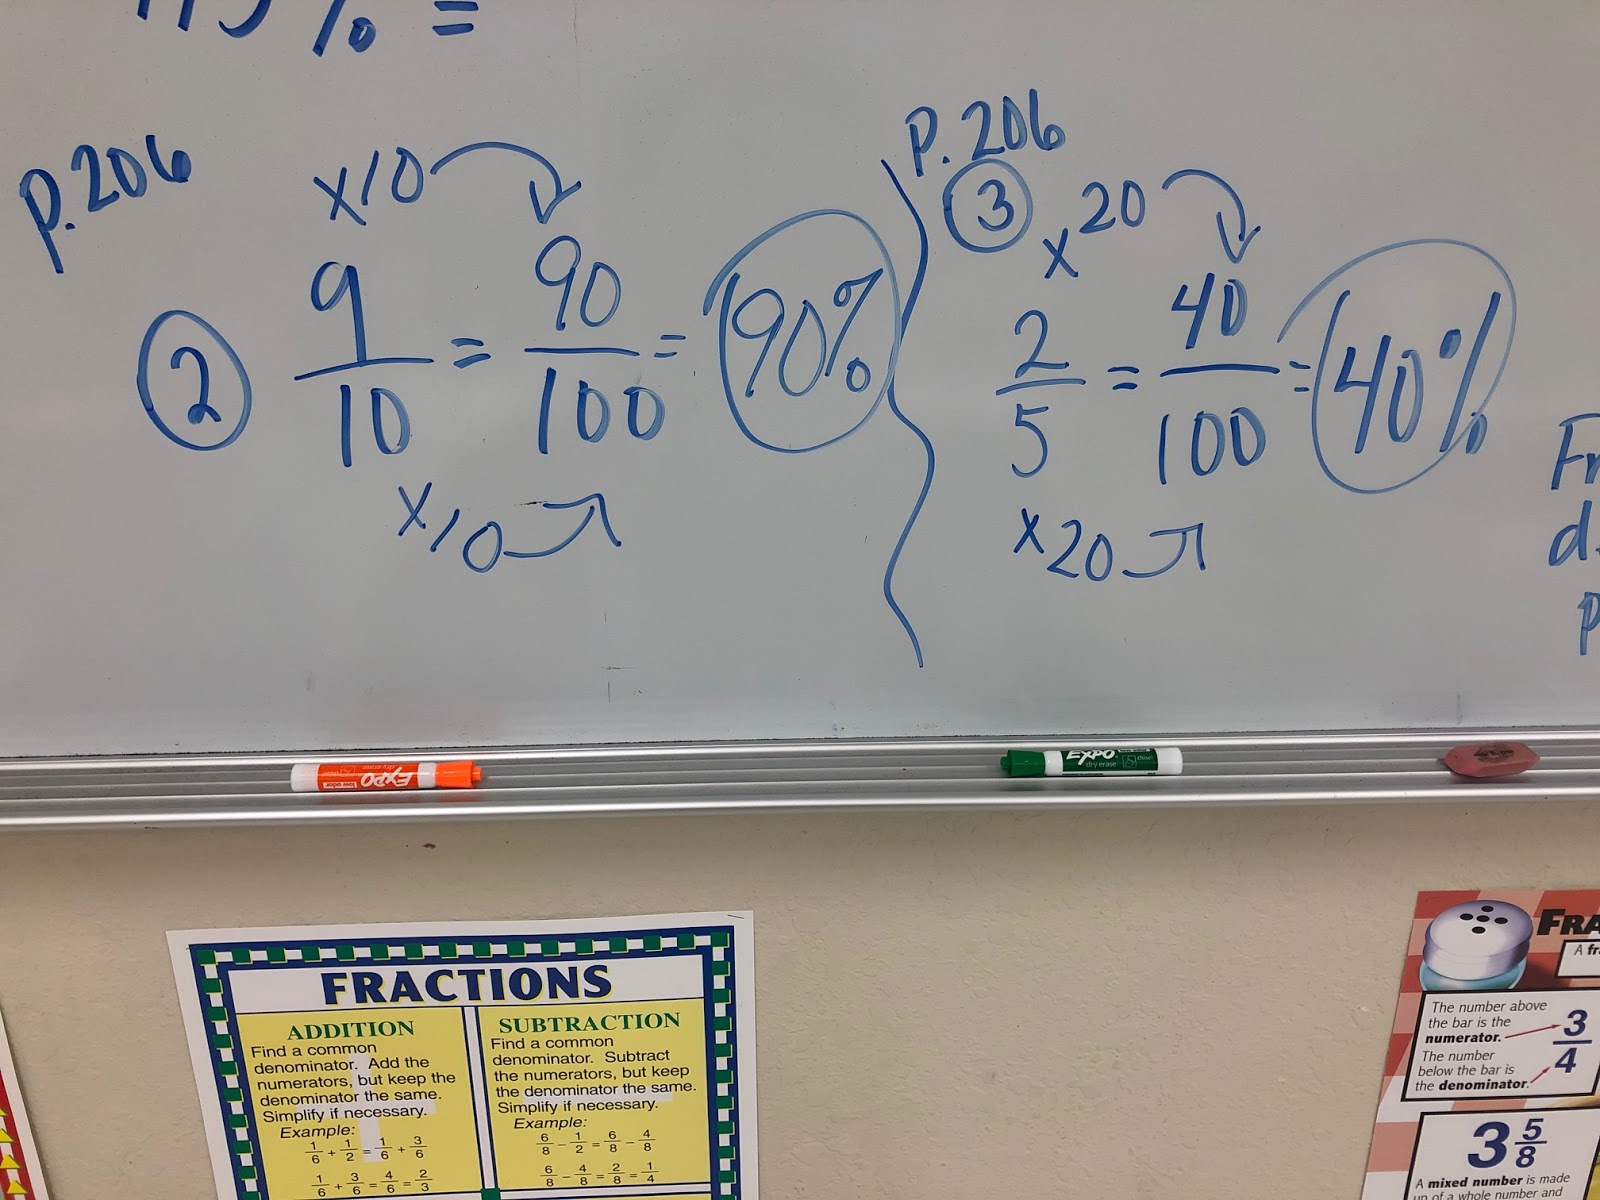 % =
p.206
x10
② 9/10 = 90/100 = 90%
x10
p.206
③ x20
2/5 = 40/100 = 40%
x20
Fr
d.
p
EXPO
low odor
dry erase
EXPO
dry erase
FRACTIONS
ADDITION
Find a common
denominator. Add the
numerators, but keep the
denominator the same.
Simplify if necessary.
Example:
1/6 + 1/2 = 1/6 + 3/6
1/6 + 3/6 = 4/6 = 2/3
SUBTRACTION
Find a common
denominator. Subtract
the numerators, but keep
the denominator the same.
Simplify if necessary.
Example:
6/8 − 1/2 = 6/8 − 4/8
6/8 − 4/8 = 2/8 = 1/4
FRA
A fr
The number above
the bar is the
numerator.
The number
below the bar is
the denominator.
3/4
3 5/8
A mixed number is made
up of a whole number and